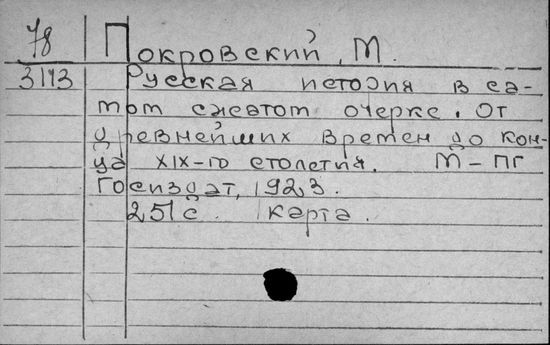 78 Покровский, М.
3143 Русская история в са-
мом сжатом очерке. От
древнейших времен до кон-
ца XIX-го столетия. М-ПГ
Госиздат, 1923.
251 с. карта.